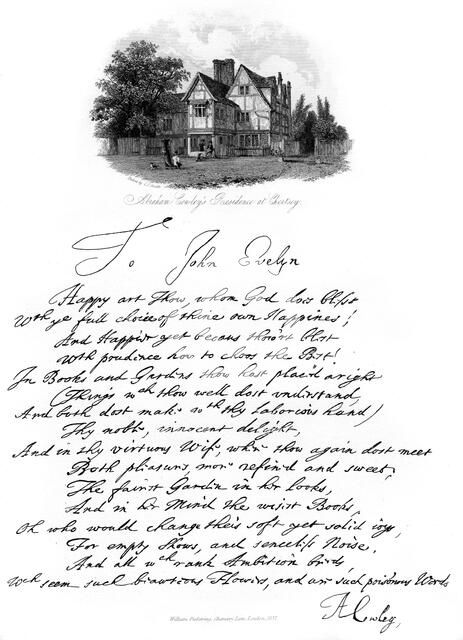 Abraham Cowley's Residence at Chertsey.
To John Evelyn
Happy art Thou, whom God does bless
Wth ye full choice of thine own Happines;
And Happier yet becaus thou'rt blest
Wth prudence how to choos the Best!
In Books and Gardens thou hast plac'd aright
(Things wch thou well dost understand,
And both dost make wth thy laborious hand)
Thy noble, innocent delight,
And in thy virtuous Wife, wher thou again dost meet
Both pleasurs more refin'd and sweet;
The fairest Garden in her looks,
And in her Mind the wisest Books.
Oh who would change theis soft yet solid ioys,
For empty Shows, and senceless Noise,
And all wch rank Ambition birds,
Wch seem such beauteous Flowers, and are such poisonous Weeds
A Cowley,
William Pickering, Chancery Lane, London, 1837.